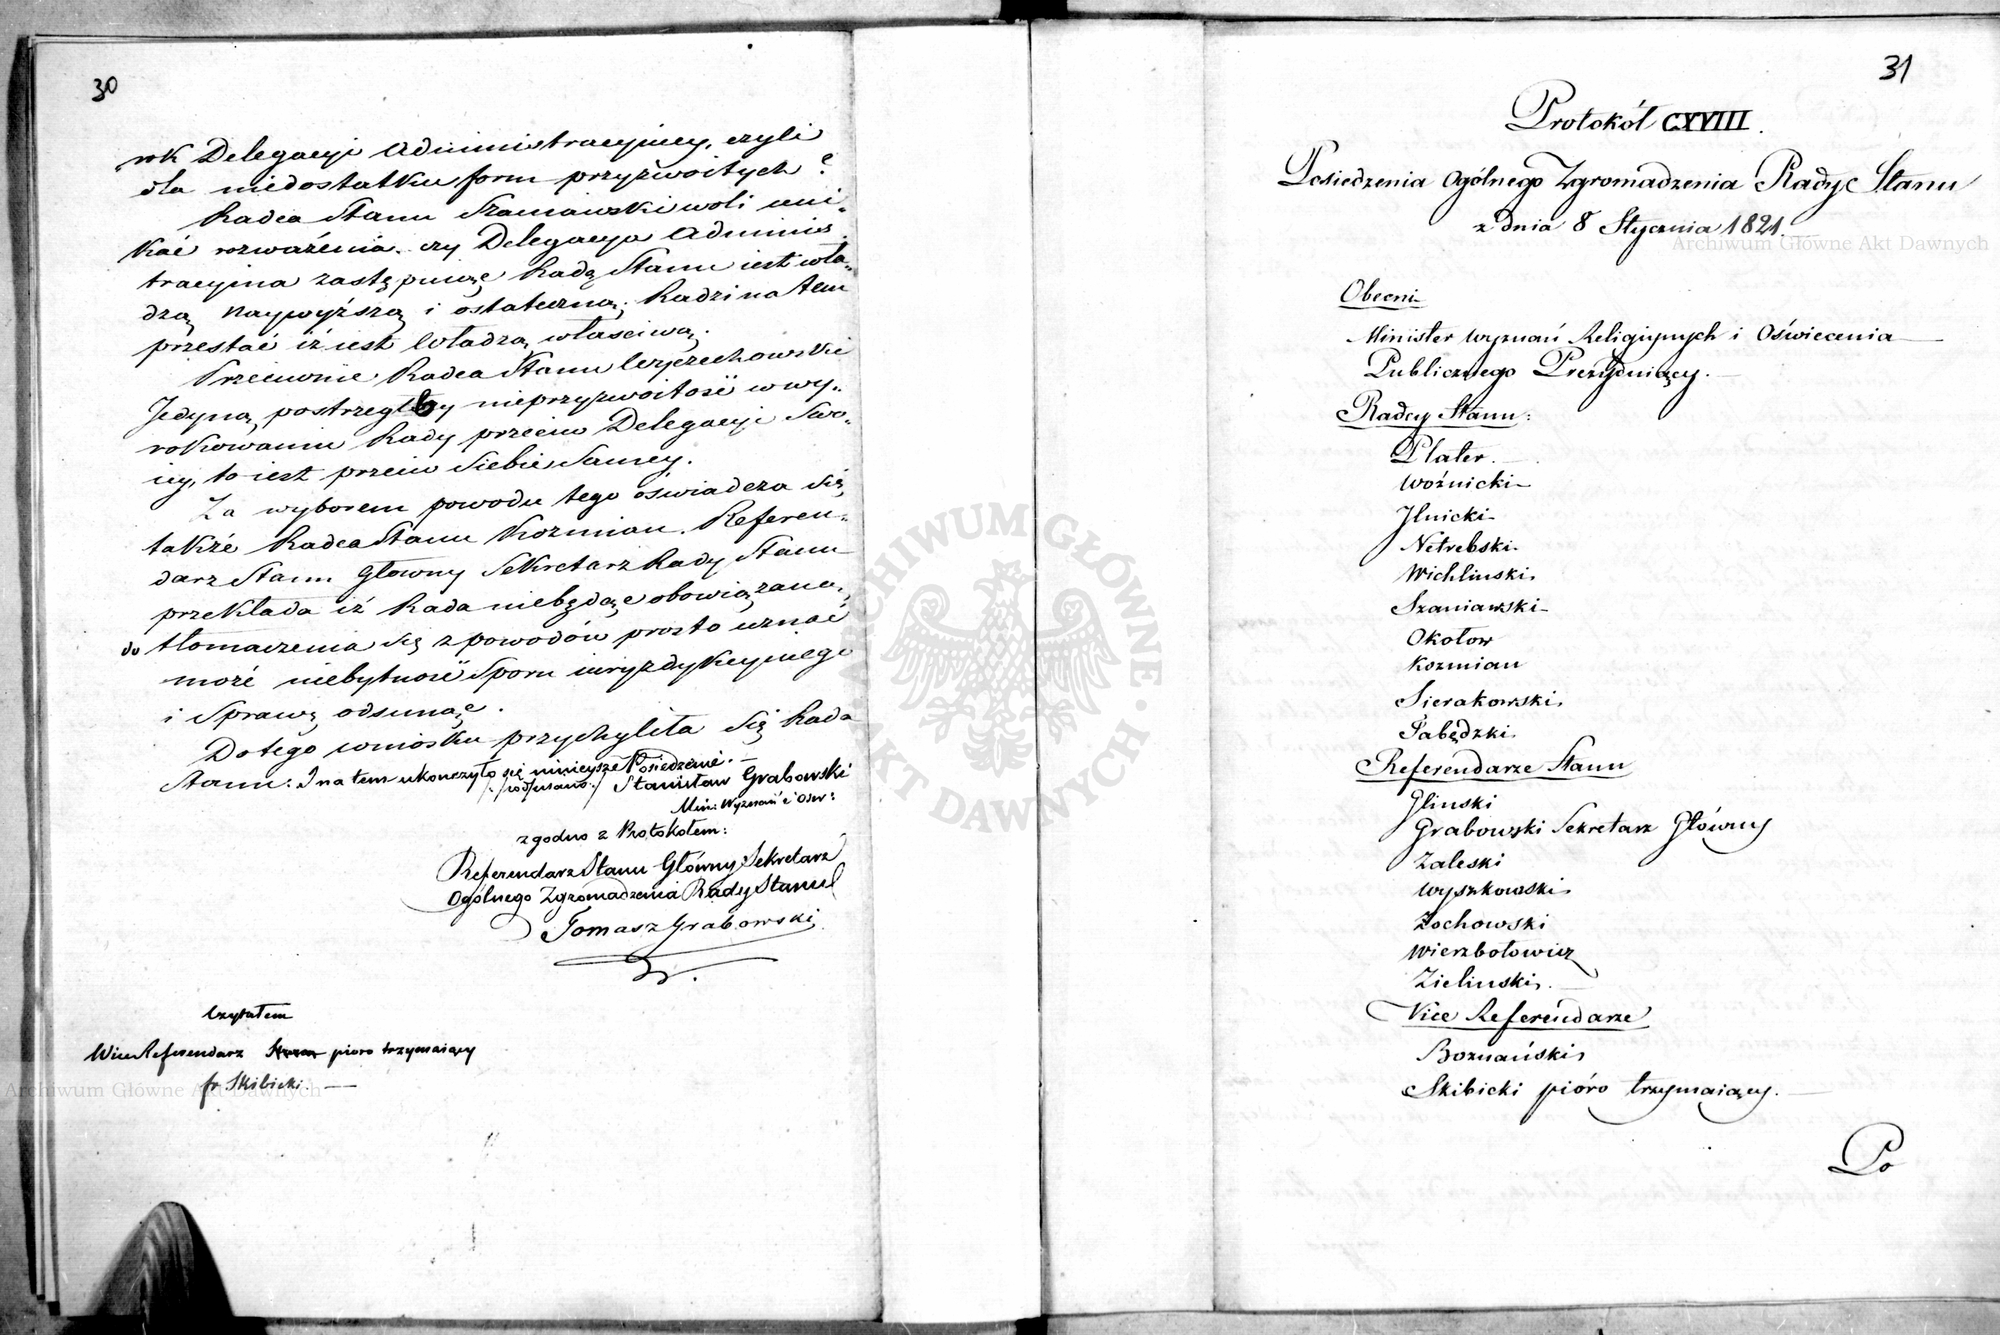 30
rok Delegacyi Administracyiney, czyli
dla niedostatku form przyzwoitych?
Radca Stanu Szaniawski woli uni-
kać rozważenia czy Delegacya Adminis-
tracyina zastępuiąc Radę Stanu iest wła-
dzą naywyższą i ostateczną; Radzi na tem
przestać iż iest Władzą właściwą.
Przeciwnie Radca Stanu Woyczechowski
Jedyną postrzegłby nieprzyzwoitość w wy-
rokowaniu Rady przeciw Delegacyi Swo-
iey, to iest przeciw Siebie Samey.
Za wyborem powodu tego oświadcza się
także Radca Stanu Kozmian. Referen-
darz Stanu Główny Sekretarz Rady Stanu
przekłada iż Rada niebędąc obowiązaną
do tłomaczenia się z powodów prosto uznać
może niebytność Sporu iuryzdykcyinego
i Sprawę odsunąć.
Do tego wniosku przychyliła się Rada
Stanu: I na tem ukonczyło się ninieysze Posiedzenie.
/:podpisano:/ Stanisław Grabowski
Min: Wyznań i Ośw:
zgodno z Protokołem:
Referendarz Stanu Główny Sekretarz
Ogólnego Zgromadzenia Rady Stanu
Tomasz Grabowski
Czytałem
Wice Referendarz pioro trzymaiący
fr. Skibicki.
31
Protokół CXVIII.
Posiedzenia Ogólnego Zgromadzenia Rady Stanu
z dnia 8 Stycznia 1821.
Obecni
Minister Wyznań Religiynych i Oświecenia
Publicznego Prezyduiący.
Radcy Stanu:
Plater.
Woźnicki
Ilnicki
Netrebski
Wichlinski
Szaniawski
Okołow
Kozmian
Sierakowski
Łabędzki
Referendarze Stanu
Glinski
Grabowski Sekretarz Główny
Zaleski
Wyszkowski
Żochowski
Wierzbołowicz
Zielinski.
Vice Referendarze
Boznański
Skibicki pióro trzymaiący.
Po
Archiwum Główne Akt Dawnych
Archiwum Główne Akt Dawnych
ARCHIWUM GŁÓWNE · AKT DAWNYCH ·